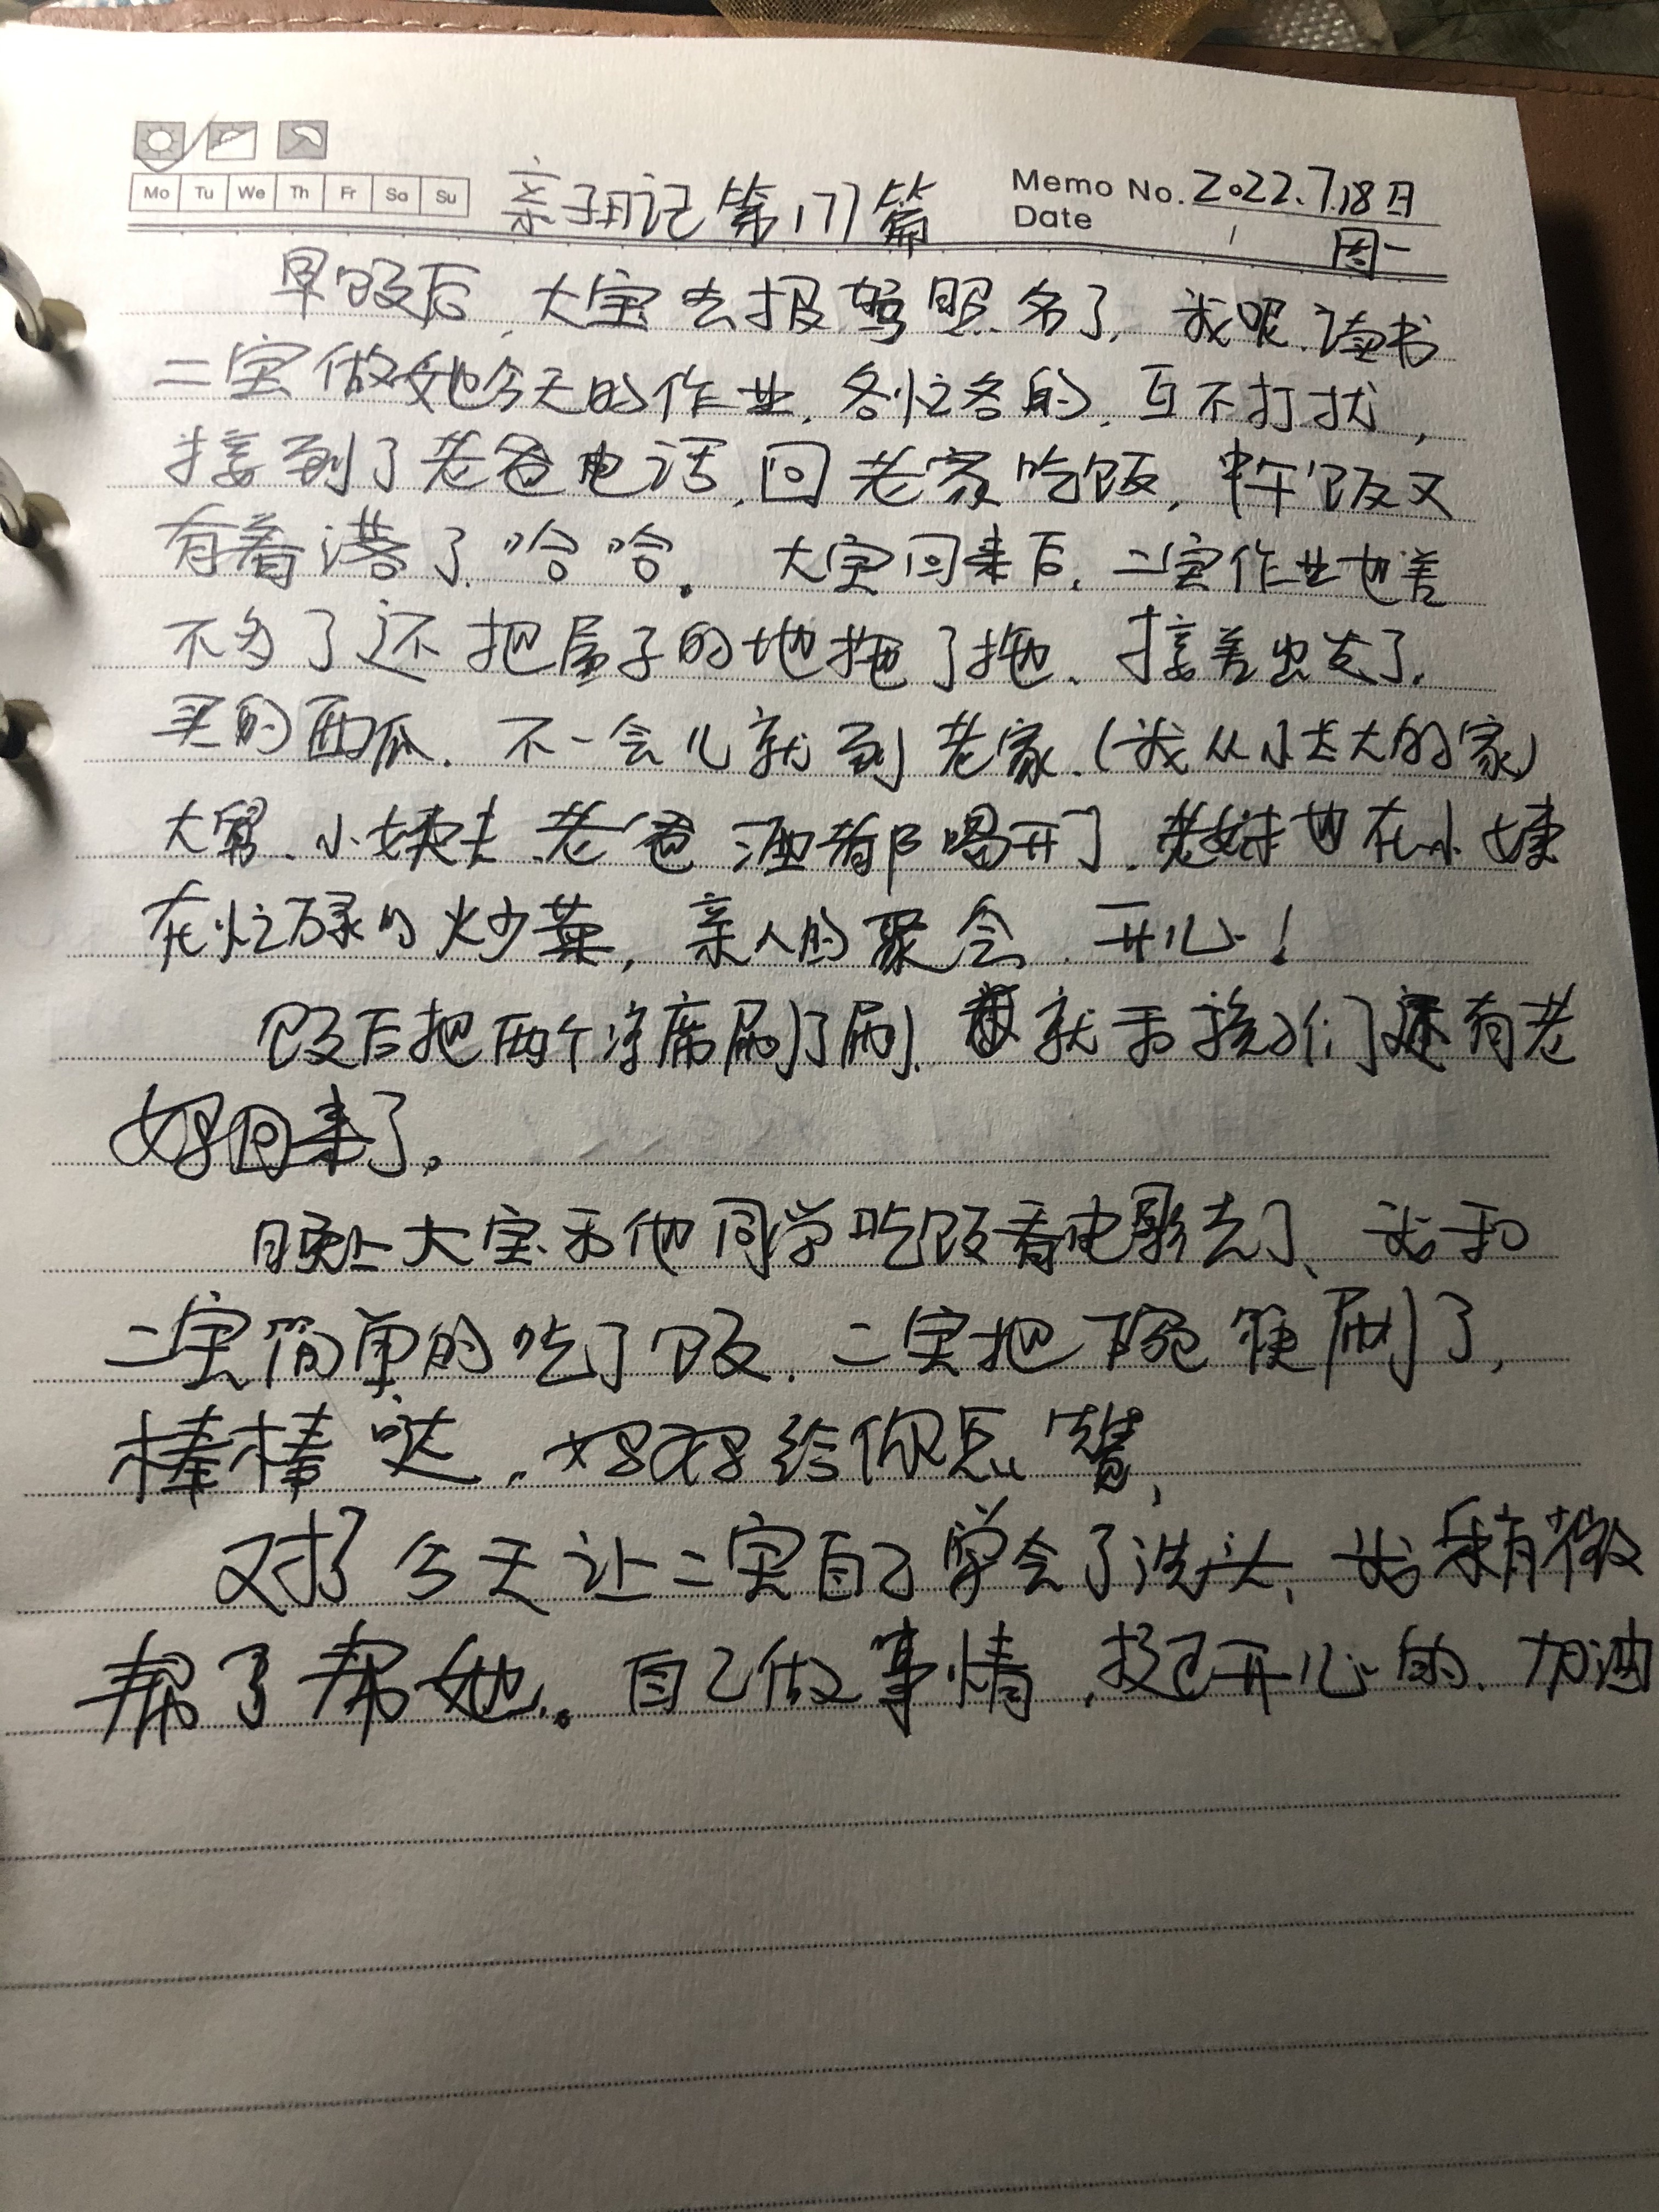 Mo Tu We Th Fr Sa Su
亲子日记第171篇
Memo No. 2022.7.18日
Date 周一
早饭后,大宝去报驾照名了,我呢.读书
二宝做她今天的作业,各忙各的,互不打扰,
接到了老爸电话,回老家吃饭,中午饭又
有着落了.哈哈。大宝回来后,二宝作业也差
不多了还把屋子的地拖了拖、接着出发了.
买的西瓜.不一会儿就到老家.(我从小长大的家)
大舅、小姨夫、老爸酒都喝开了.老妹也在小姨
在忙碌的炒菜,亲人的聚会,开心!
饭后把两个凉席刷了刷,就和孩子们还有老
妈回来了。
晚上大宝和他同学吃饭看电影去了、我和
二宝简单的吃了饭.二宝把碗筷刷了,
棒棒哒,妈妈给你点赞,
对了今天让二宝自己学会了洗头,我稍微
帮了帮她。自己做事情,挺开心的.加油